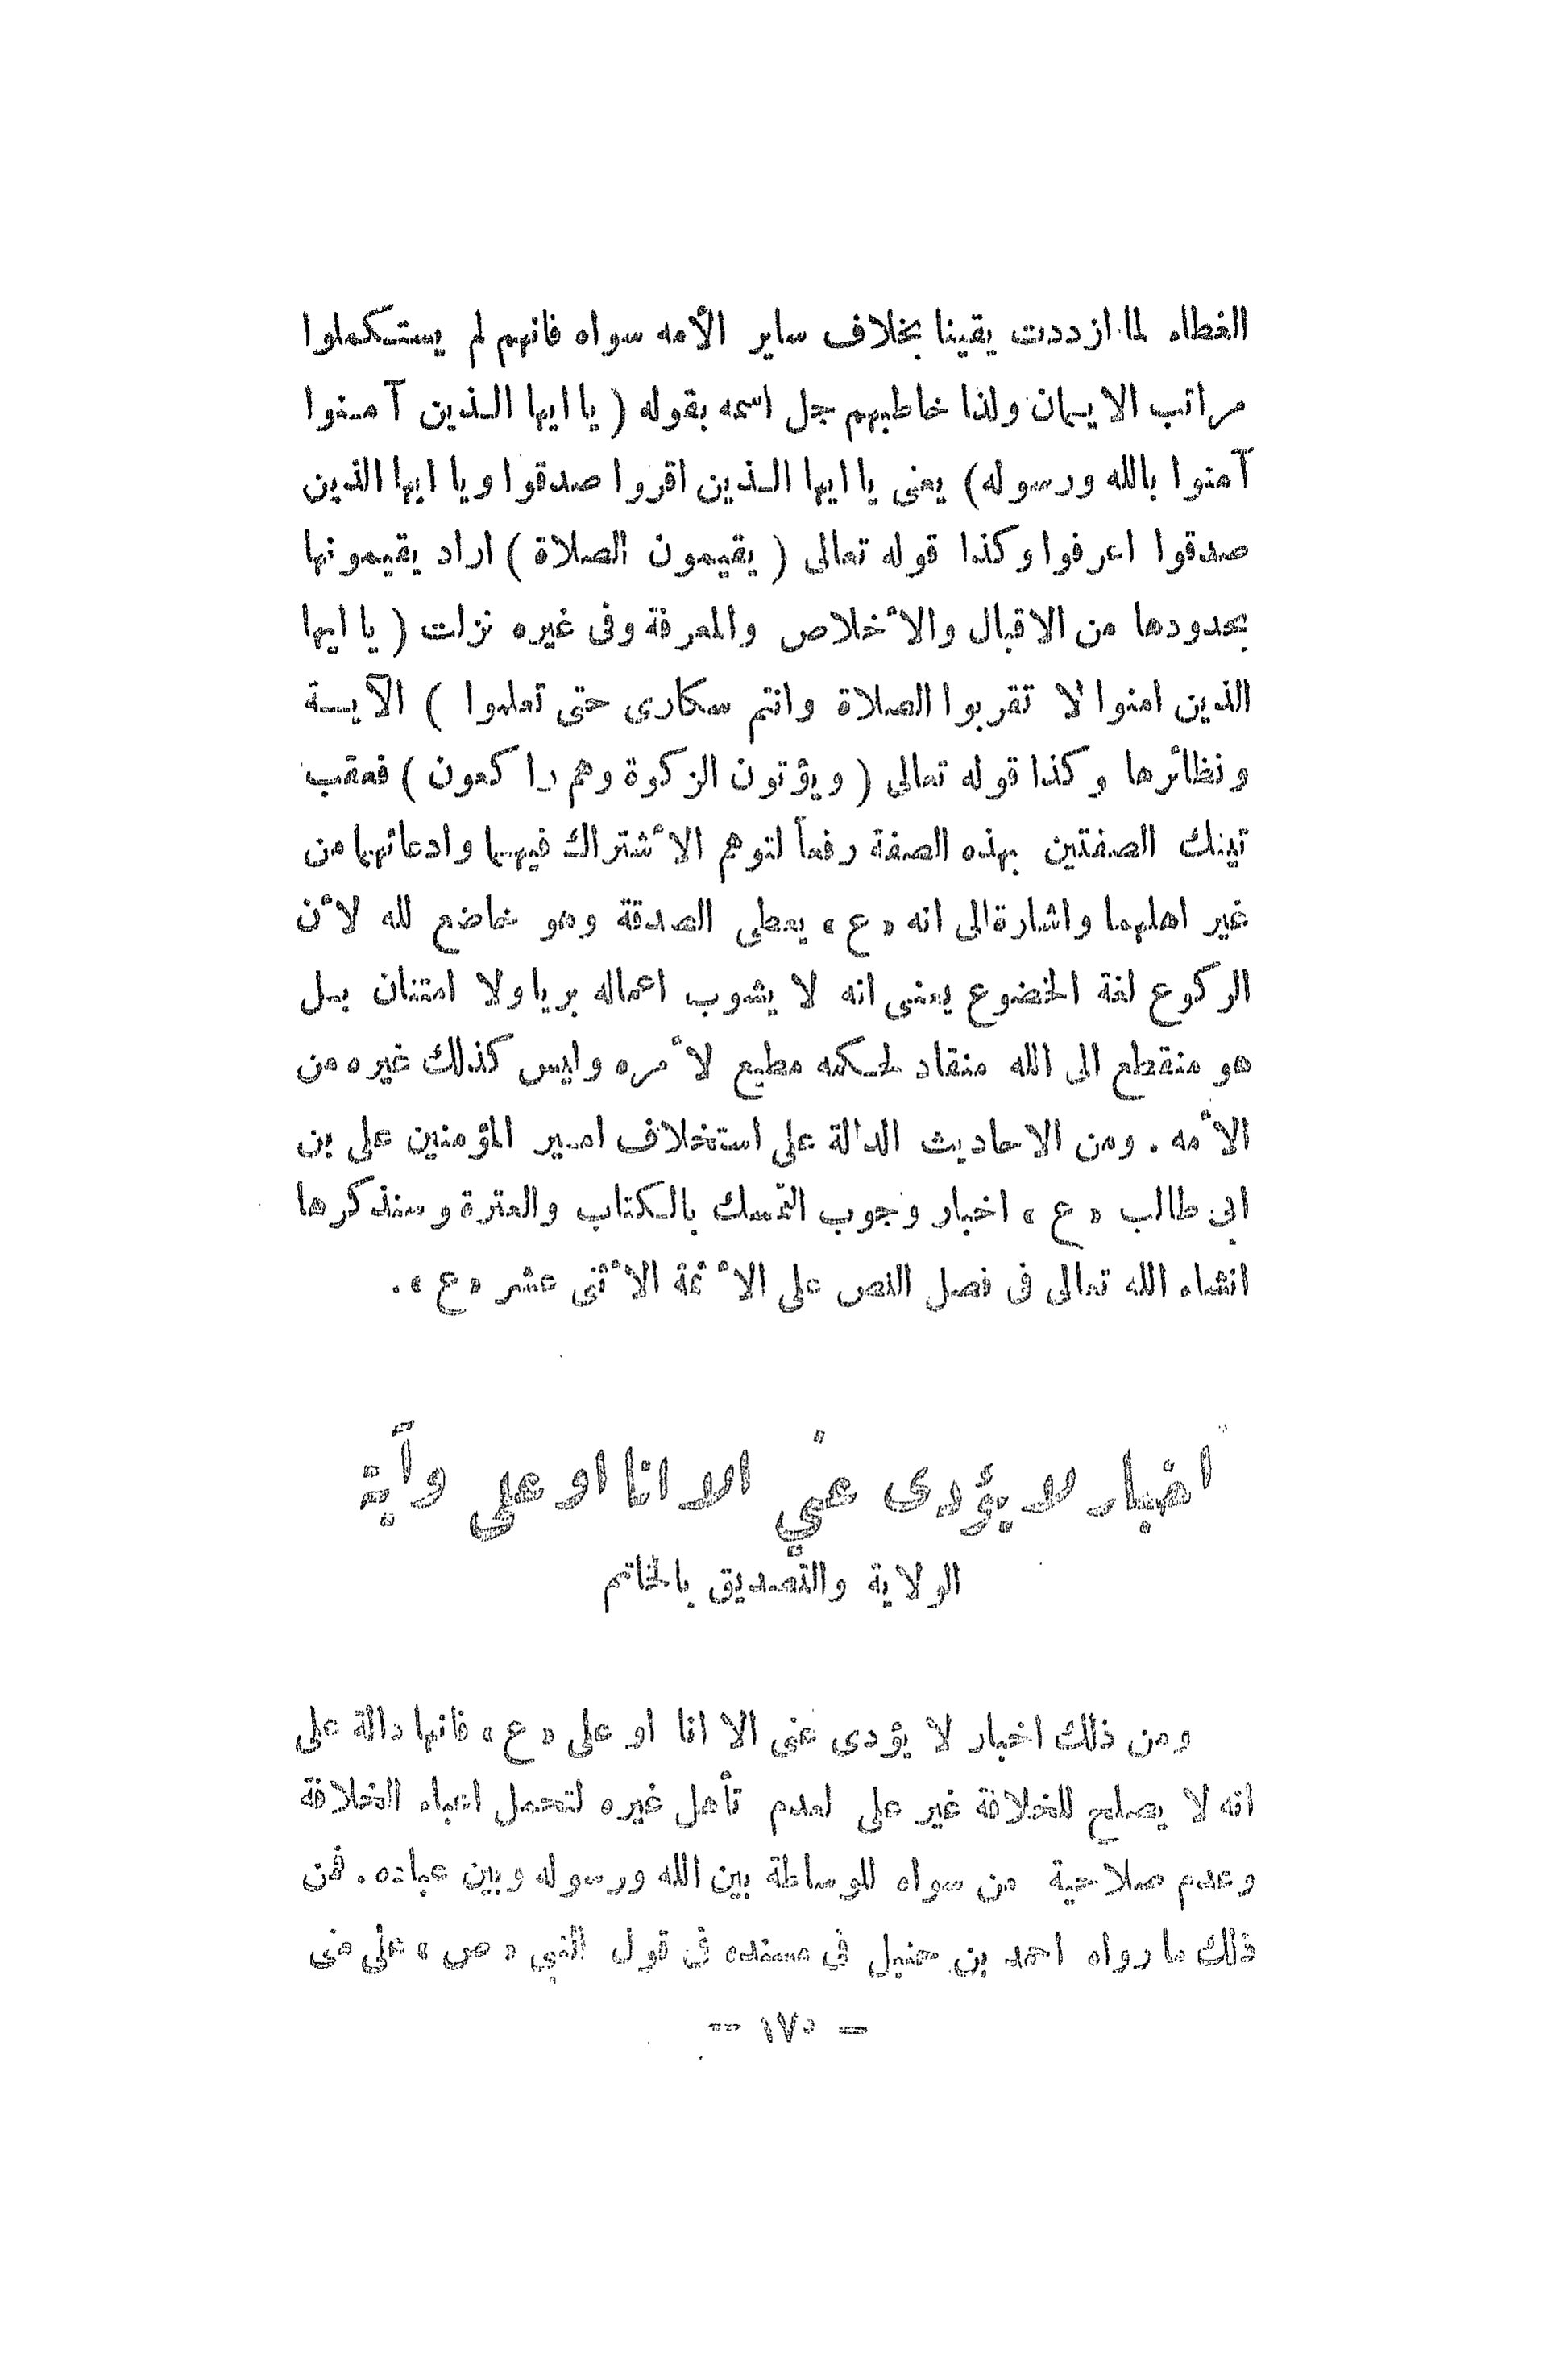 الغطاء لما ازددت يقينا بخلاف ساير الأمه سواه فانهم لم يستكملوا
مراتب الايمان ولذا خاطبهم جل اسمه بقوله ( يا ايها الذين آمنوا
آمنوا بالله ورسوله) يعنى يا ايها الذين اقروا صدقوا ويا ايها الذين
صدقوا اعرفوا وكذا قوله تعالى ( يقيمون الصلاة ) اراد يقيمونها
بحدودها من الاقبال والأخلاص والمعرفة وفى غيره نزلت ( يا ايها
الذين امنوا لا تقربوا الصلاة وانتم سكارى حتى تعلموا ) الآية
ونظائرها وكذا قوله تعالى ( ويؤتون الزكوة وهم راكعون ) فعقب
تينك الصفتين بهذه الصفة رفعاً لتوهم الأشتراك فيهما وادعائهما من
غير اهلهما واشارة الى انه «ع» يعطى الصدقة وهو خاضع لله لأن
الركوع لغة الخضوع يعنى انه لا يشوب اعماله بريا ولا امتنان بل
هو منقطع الى الله منقاد لحكمه مطيع لأمره وليس كذلك غيره من
الأمه . ومن الاحاديث الدالة على استخلاف امير المؤمنين على بن
ابى طالب «ع» اخبار وجوب التمسك بالكتاب والعترة وسنذكرها
انشاء الله تعالى فى فصل النص على الأئمة الأثنى عشر «ع» .
اخبار لا يؤدى عني الا انا او على وآية
الولاية والتصديق بالخاتم
ومن ذلك اخبار لا يؤدى عنى الا انا او على «ع» فانها دالة على
انه لا يصلح للخلافة غير على لعدم تأهل غيره لتحمل اعباء الخلافة
وعدم صلاحية من سواه للوساطة بين الله ورسوله وبين عباده . فمن
ذلك ما رواه احمد بن حنبل فى مسنده فى قول النبى «ص» على منى
— ١٧٠ —